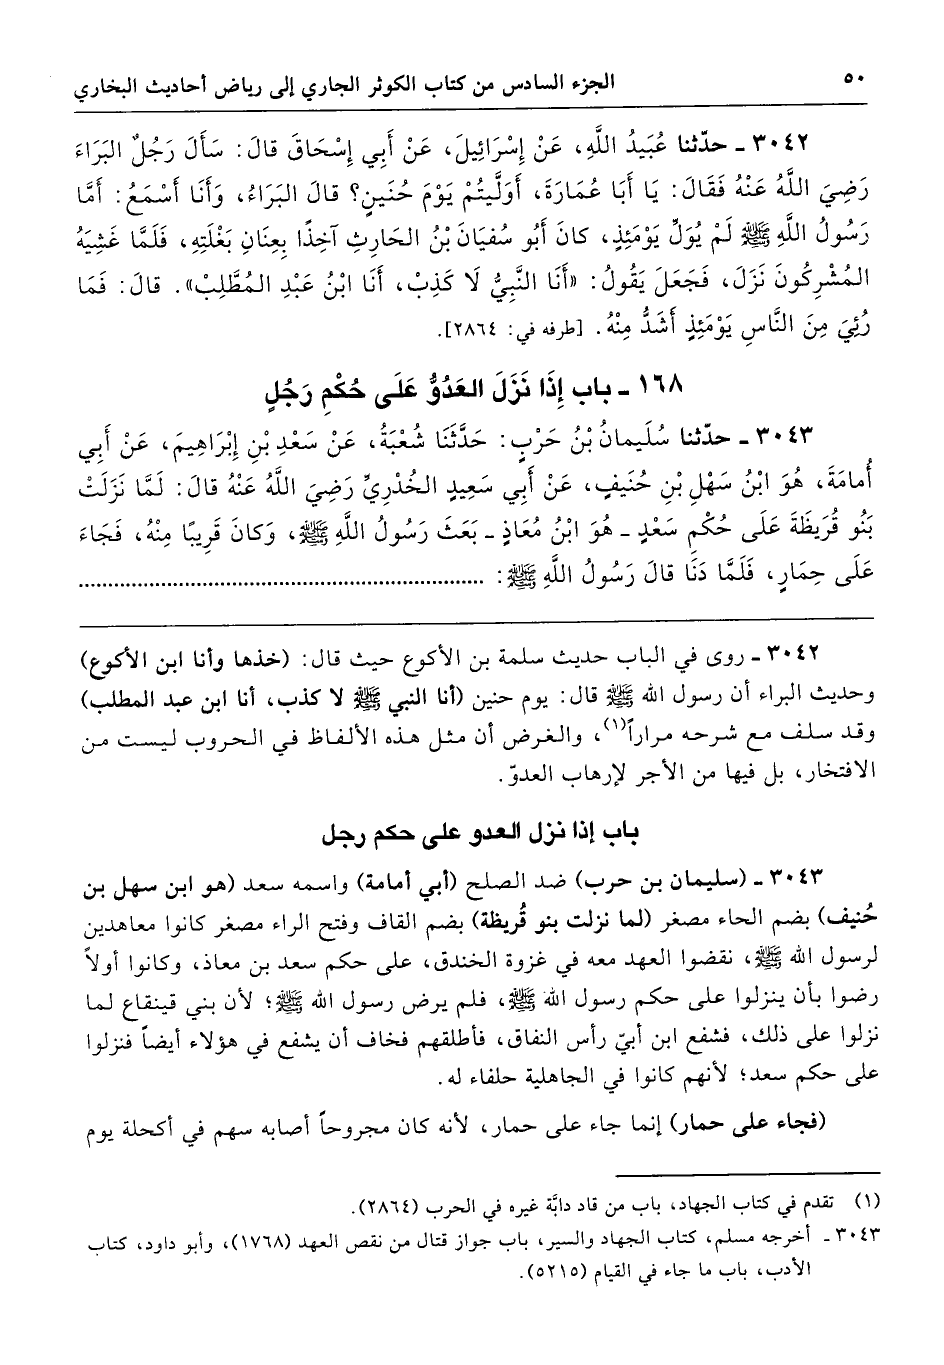 ٥٠
الجزء السادس من كتاب الكوثر الجاري إلى رياض أحاديث البخاري
٣٠٤٢ ـ حدّثنا عُبَيدُ اللَّهِ، عَنْ إِسْرَائِيلَ، عَنْ أَبِي إِسْحَاقَ قالَ: سَأَلَ رَجُلٌ البَرَاءَ
رَضِيَ اللَّهُ عَنْهُ فَقَالَ: يَا أَبَا عُمَارَةَ، أَوَلَّيتُمْ يَوْمَ حُنَينٍ؟ قالَ البَرَاءُ، وَأَنَا أَسْمَعُ: أَمَّا
رَسُولُ اللَّهِ ﷺ لَمْ يُوَلِّ يَوْمَئِذٍ، كانَ أَبُو سُفيَانَ بْنُ الحَارِثِ آخِذًا بِعِنَانِ بَغْلَتِهِ، فَلَمَّا غَشِيَهُ
المُشْرِكُونَ نَزَلَ، فَجَعَلَ يَقُولُ: «أَنَا النَّبِيُّ لَا كَذِبْ، أَنَا ابْنُ عَبْدِ المُطَّلِبْ». قالَ: فَمَا
رُئِيَ مِنَ النَّاسِ يَوْمَئِذٍ أَشَدُّ مِنْهُ. [طرفه في: ٢٨٦٤].
١٦٨ ـ باب إِذَا نَزَلَ العَدُوُّ عَلَى حُكْمِ رَجُلٍ
٣٠٤٣ ـ حدّثنا سُلَيمانُ بْنُ حَرْبٍ: حَدَّثَنَا شُعْبَةُ، عَنْ سَعْدِ بْنِ إِبْرَاهِيمَ، عَنْ أَبِي
أُمامَةَ، هُوَ ابْنُ سَهْلِ بْنِ حُنَيفٍ، عَنْ أَبِي سَعِيدٍ الخُدْرِيِّ رَضِيَ اللَّهُ عَنْهُ قالَ: لَمَّا نَزَلَتْ
بَنُو قُرَيظَةَ عَلَى حُكْمِ سَعْدٍ ـ هُوَ ابْنُ مُعَاذٍ ـ بَعَثَ رَسُولُ اللَّهِ ﷺ، وَكانَ قَرِيبًا مِنْهُ، فَجَاءَ
عَلَى حِمَارٍ، فَلَمَّا دَنَا قالَ رَسُولُ اللَّهِ ﷺ: ......................................................................
٣٠٤٢ ـ روى في الباب حديث سلمة بن الأكوع حيث قال: (خذها وأنا ابن الأكوع)
وحديث البراء أن رسول الله ﷺ قال: يوم حنين (أنا النبي ﷺ لا كذب، أنا ابن عبد المطلب)
وقد سلف مع شرحه مراراً(١)، والغرض أن مثل هذه الألفاظ في الحروب ليست من
الافتخار، بل فيها من الأجر لإرهاب العدوّ.
باب إذا نزل العدو على حكم رجل
٣٠٤٣ ـ (سليمان بن حرب) ضد الصلح (أبي أمامة) واسمه سعد (هو ابن سهل بن
حُنيف) بضم الحاء مصغر (لما نزلت بنو قُريظة) بضم القاف وفتح الراء مصغر كانوا معاهدين
لرسول الله ﷺ، نقضوا العهد معه في غزوة الخندق، على حكم سعد بن معاذ، وكانوا أولاً
رضوا بأن ينزلوا على حكم رسول الله ﷺ، فلم يرض رسول الله ﷺ؛ لأن بني قينقاع لما
نزلوا على ذلك، فشفع ابن أبيّ رأس النفاق، فأطلقهم فخاف أن يشفع في هؤلاء أيضاً فنزلوا
على حكم سعد؛ لأنهم كانوا في الجاهلية حلفاء له.
(فجاء على حمار) إنما جاء على حمار، لأنه كان مجروحاً أصابه سهم في أكحلة يوم
(١) تقدم في كتاب الجهاد، باب من قاد دابَّة غيره في الحرب (٢٨٦٤).
٣٠٤٣ ـ أخرجه مسلم، كتاب الجهاد والسير، باب جواز قتال من نقص العهد (١٧٦٨)، وأبو داود، كتاب
الأدب، باب ما جاء في القيام (٥٢١٥).